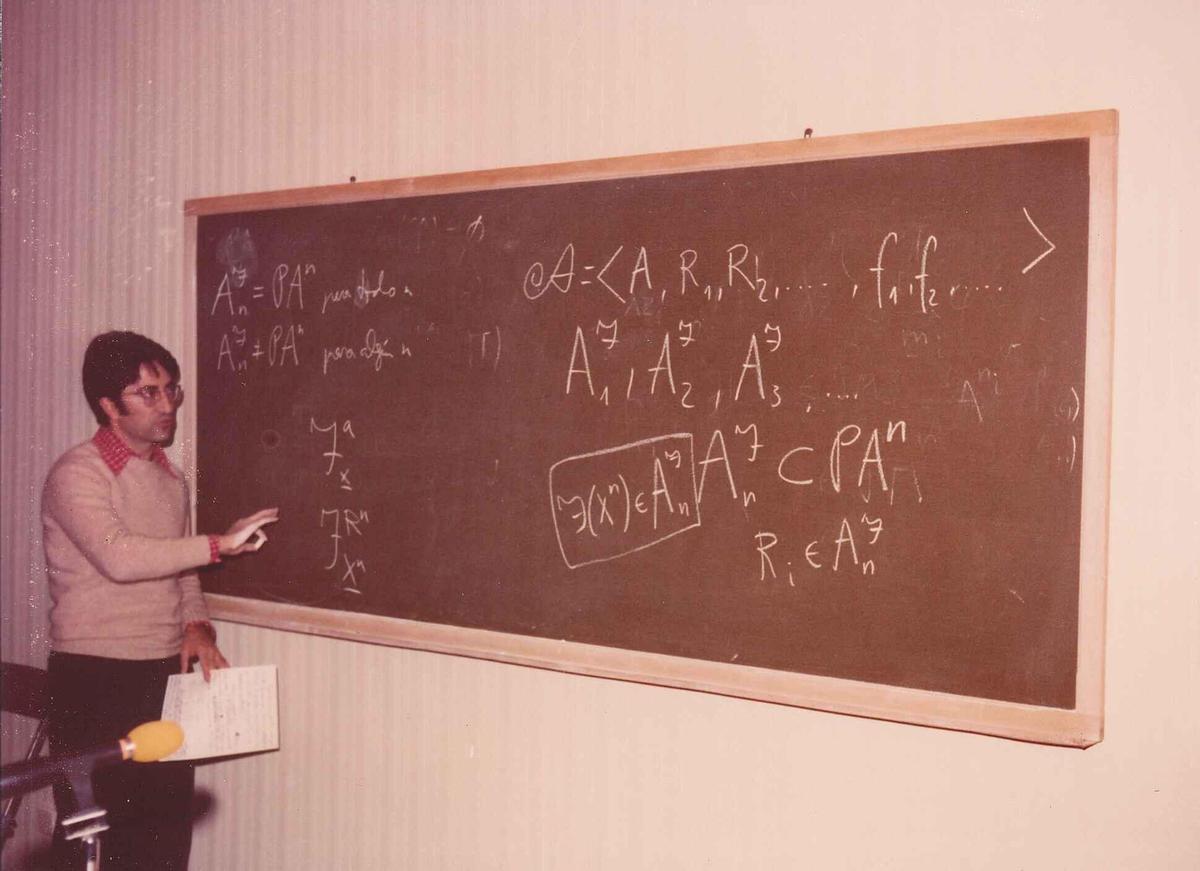 Aₙ^ℐ = PAⁿ para todo n
Aₙ^ℐ ≠ PAⁿ para algún n
ℐₓᵃ
ℐ_Xⁿ^Rⁿ
𝒜 = <A, R₁, R₂, ...., f₁, f₂, .... >
A₁^ℐ, A₂^ℐ, A₃^ℐ, ....
ℐ(Xⁿ) ∈ Aₙ^ℐ
Aₙ^ℐ ⊂ PAⁿ
Rᵢ ∈ Aₙ^ℐ